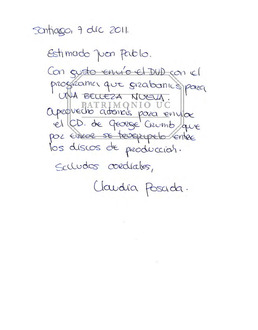 Santiago, 7 dic 2011
Estimado Juan Pablo.
Con gusto envío el DVD con el
programa que grabamos para
UNA BELLEZA NUEVA.
PATRIMONIO UC
Aprovecho además para enviar
el CD. de George Crumb que
por error se traspapeló entre
los discos de producción.
Saludos cordiales,
Claudia Posada.